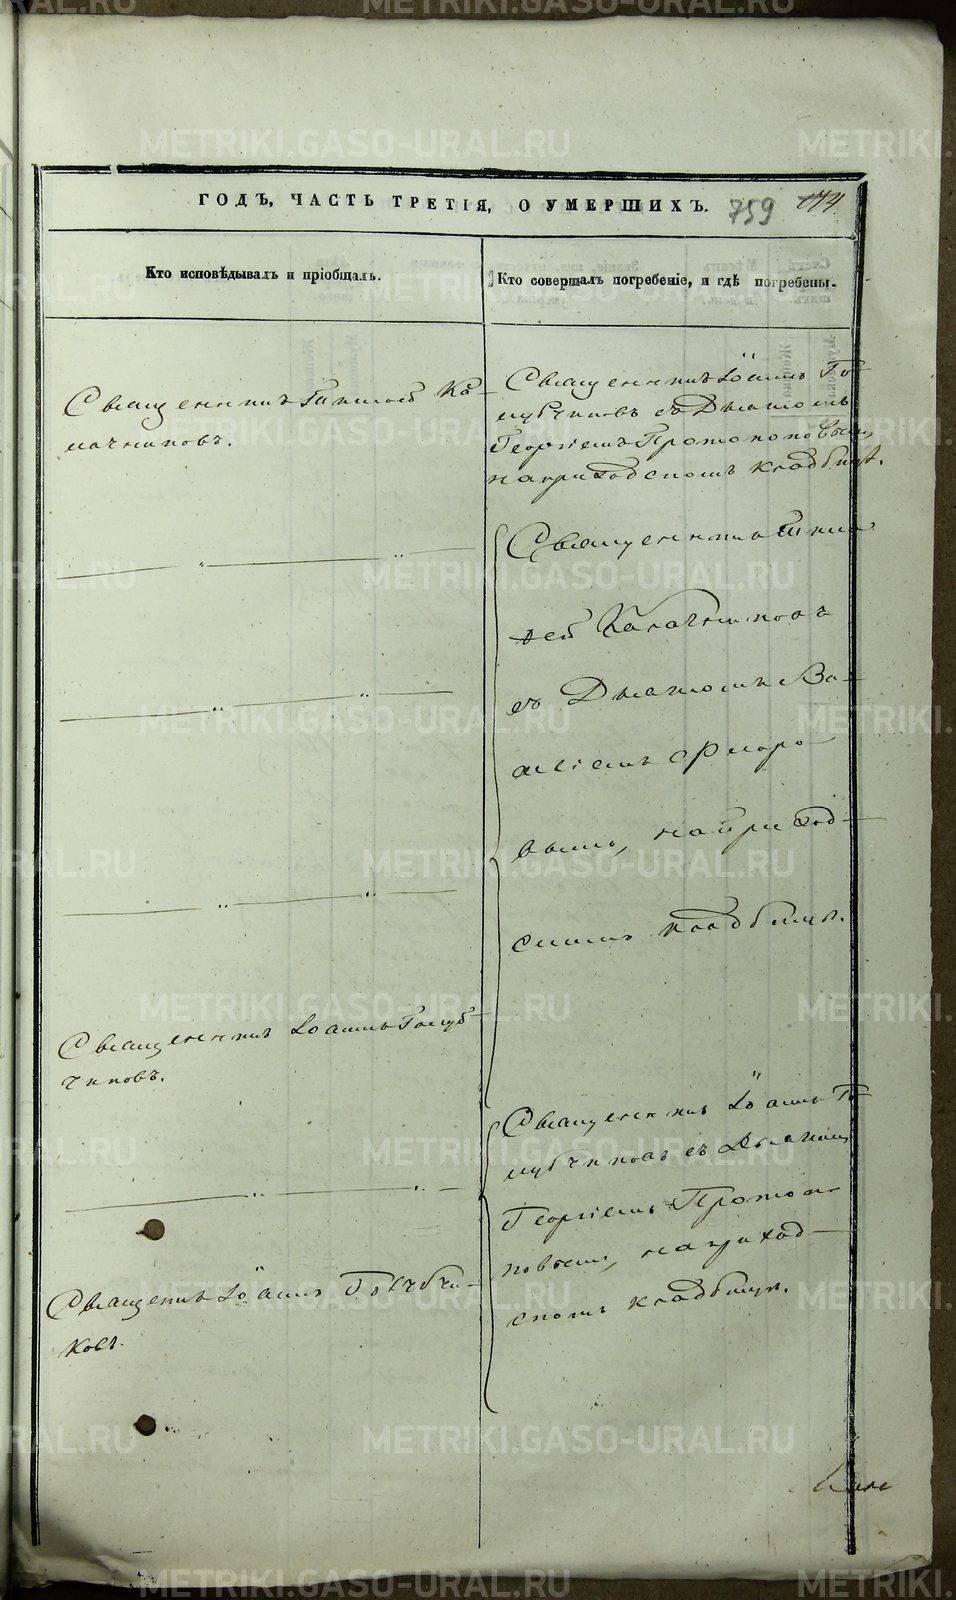 ГОДЪ, ЧАСТЬ ТРЕТІЯ, О УМЕРШИХЪ.
759
174
Кто исповѣдывалъ и пріобщалъ.
Кто совершалъ погребеніе, и гдѣ погребены.
Священникъ Тимоѳей Ка-
лачниковъ.
Священникъ Іоаннъ Го-
лубчиковъ съ Дьякономъ
Георгіемъ Протопоповымъ,
на приходскомъ кладбищѣ.
Священникъ Тимо
ѳей Калачниковъ
съ Дьякономъ Ва-
силіемъ
вымъ, на приход-
скомъ кладбищѣ.
Священникъ Іоаннъ Голуб-
чиковъ.
Священникъ Іоаннъ Го-
лубчиковъ съ Дьякономъ
Георгіемъ Протопо-
повымъ, на приход-
скомъ кладбищѣ.
Священикъ Іоаннъ
ковъ.
METRIKI.GASO-URAL.RU